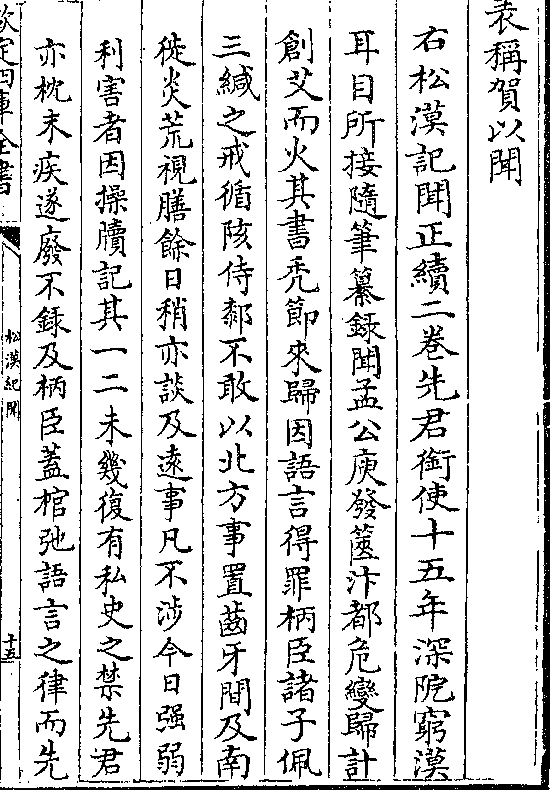 表稱賀以聞
右松漠記聞正續二卷先君銜使十五年深阨窮漠
耳目所接隨筆纂錄聞孟公庾發篋汴都危變歸計
創艾而火其書禿節來歸因語言得罪柄臣諸子佩
三緘之戒循陔侍䣛不敢以北方事置齒牙間及南
徙炎荒視膳餘日稍亦談及遠事凡不涉今日强弱
利害者因操牘記其一二未幾復有私史之禁先君
亦枕末疾遂廢不錄及柄臣蓋棺弛語言之律而先
欽定四庫全書
松漠紀聞
十五